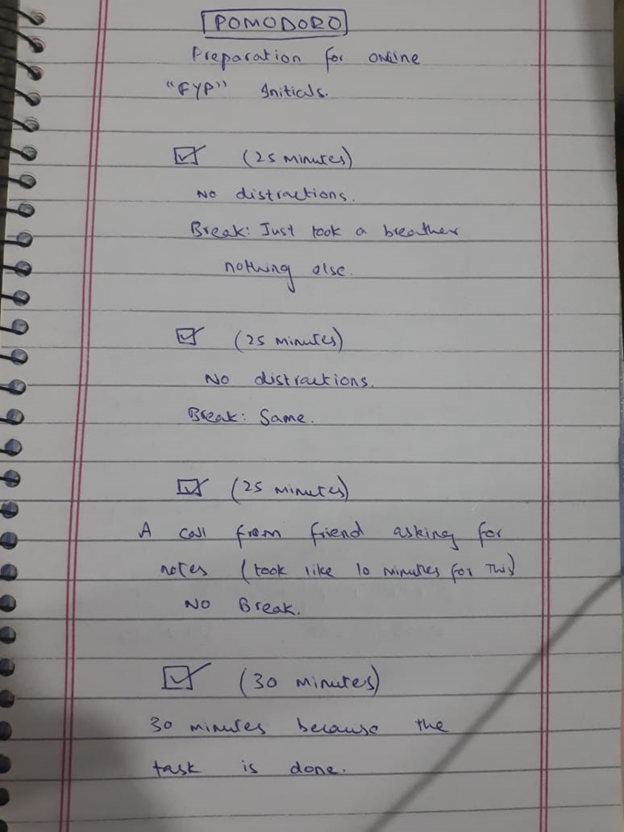 POMODORO
Preparation for online
"FYP" Initials.
☑ (25 minutes)
No distractions.
Break: Just took a breather
nothing else.
☑ (25 minutes)
No distractions.
Break: Same.
☑ (25 minutes)
A call from friend asking for
notes (took like 10 minutes for this)
No Break.
☑ (30 minutes)
30 minutes because the
task is done.